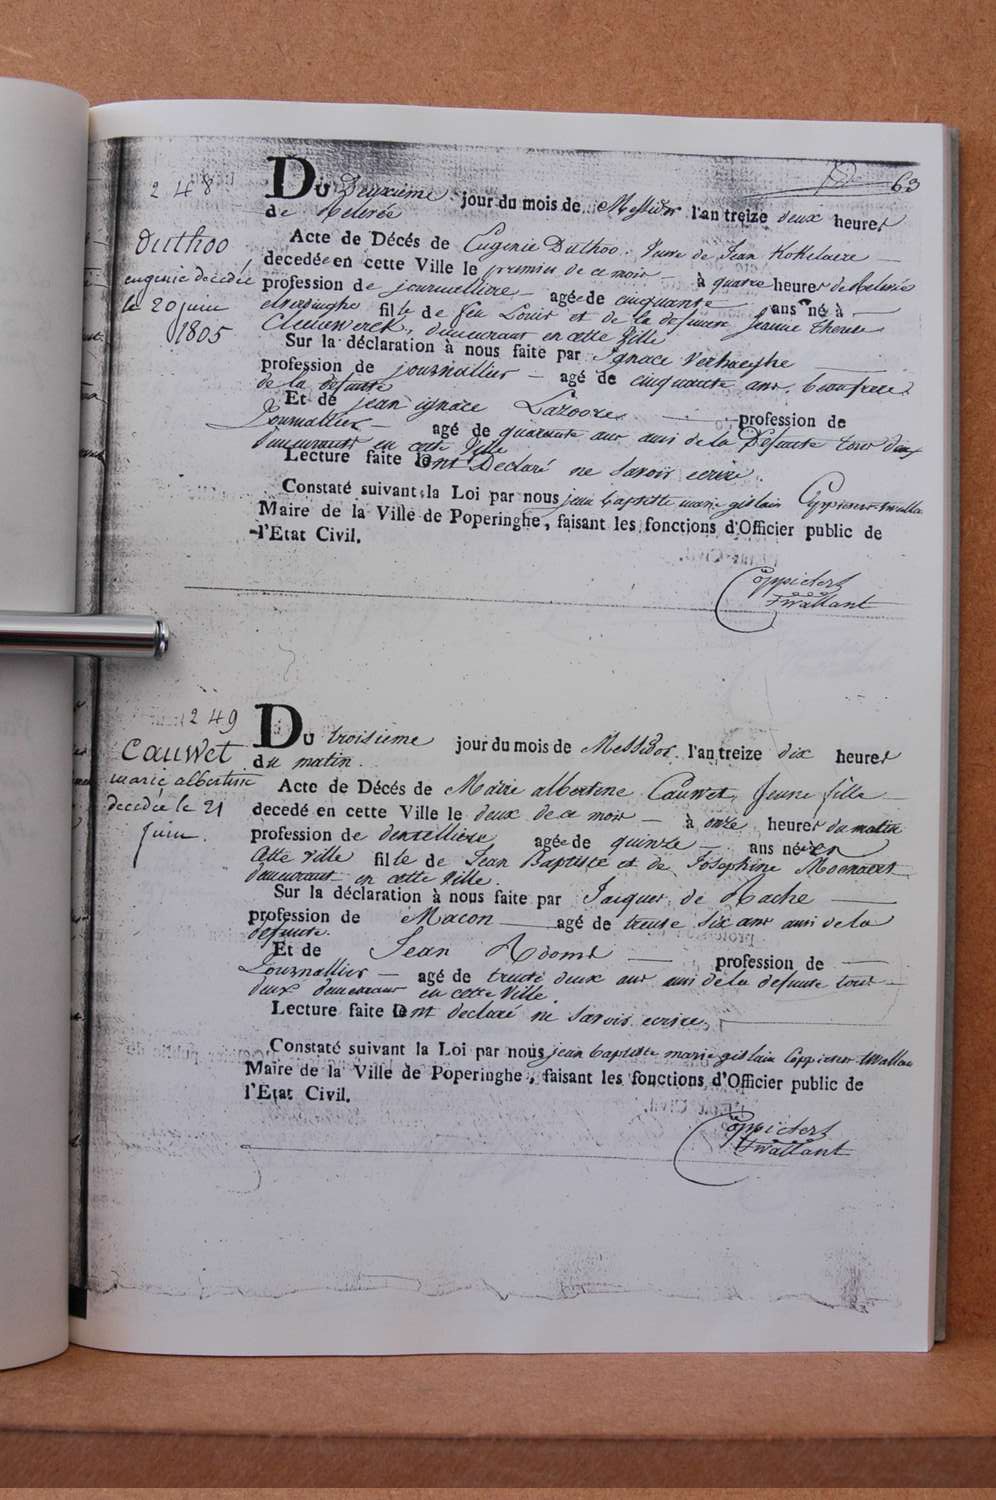 63
248
Duthoo
eugenie decedée
le 20 juin
1805
Du Deuxieme jour du mois de Messidor l'an treize deux heures
de Relevée
Acte de Décés de Eugenie Duthoo. Veuve de Jean Kokelaere
decedée en cette Ville le premier de ce mois à quatre heures de Relevée
profession de journalliere agée de cinquante ans né à
Elverdinghe fille de feu Louis et de la defunte Jeanne Therese
demeurant en cette Ville
Sur la déclaration à nous faite par Ignace Verhaeghe
profession de journallier agé de cinquante ans, beaufrere
de la defunte
Et de jean ignace profession de
Journallier agé de quarante ans ami de la Defunte tous deux
demeurants en cette Ville
Lecture faite ont Declaré ne savoir ecrire.
Constaté suivant la Loi par nous jean baptiste marie gislain Coppieters-twallant
Maire de la Ville de Poperinghe, faisant les fonctions d'Officier public de
l'Etat Civil.
Coppieters
Twallant
249
Cauwet
marie albertine
decedée le 21
juin.
Du troisieme jour du mois de Messidor l'an treize dix heures
du matin.
Acte de Décés de Marie albertene Cauwet, Jeune fille
decedé en cette Ville le deux de ce mois à onze heures du matin
profession de dentelliere agée de quinze ans née en
Cette ville fille de Jean Baptiste et de Josephine Moenaert
demeurant en cette Ville.
Sur la déclaration à nous faite par Jacques de Rache
profession de Macon agé de trente six ans ami de la
defunte.
Et de Jean Adoms profession de
Journallier agé de trente deux ans ami de la defunte tous
deux demeurant en cette Ville.
Lecture faite ont declaré ne savoir ecrire.
Constaté suivant la Loi par nous jean baptiste marie gislain Coppieters-twallant
Maire de la Ville de Poperinghe, faisant les fonctions d'Officier public de
l'Etat Civil.
Coppieters
Twallant